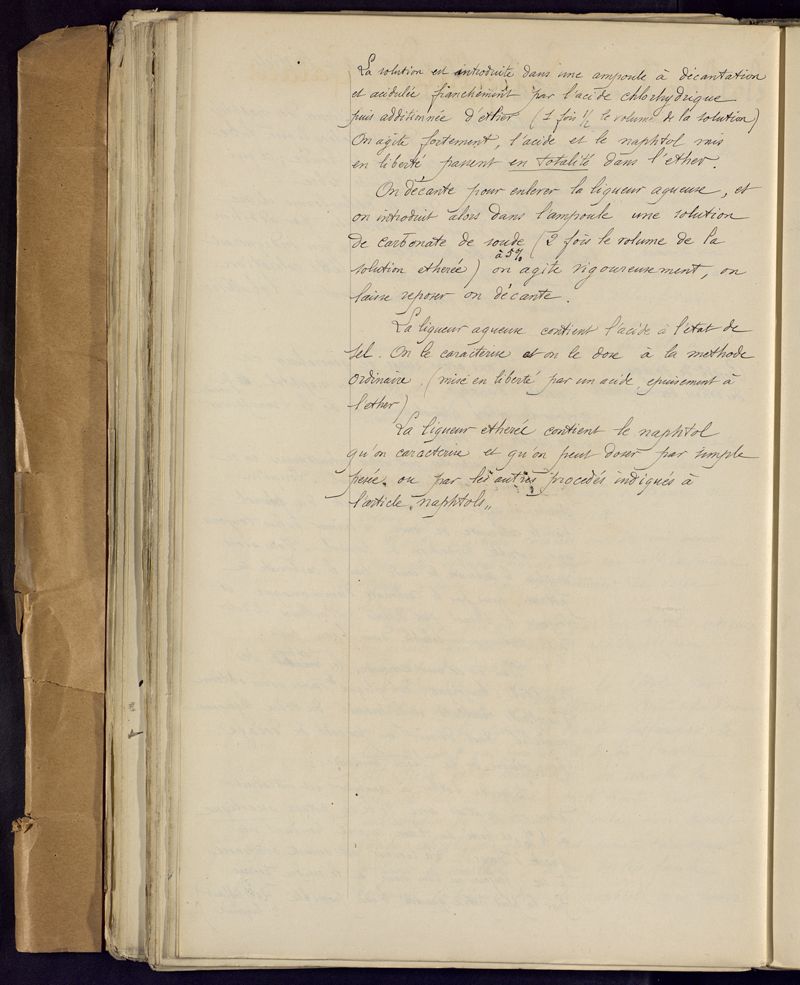 La solution est introduite dans une ampoule à décantation
et acidulée franchement par l'acide chlorhydrique
puis additionnée d'ether (1 fois 1/2 le volume de la solution)
On agite fortement, l'acide et le naphtol mis
en liberté passent en totalité dans l'ether.
On décante pour enlever la liqueur aqueuse, et
on introduit alors dans l'ampoule une solution
de carbonate de soude (2 fois le volume de la
à 5%
solution etherée) on agite vigoureusement, on
laisse reposer on décante.
La liqueur aqueuse contient l'acide à l'état de
sel. On le caracterise et on le dose à la methode
ordinaire. (mise en liberté par un acide, epuisement à
l'ether)
La liqueur etherée contient le naphtol
qu'on caracterise et qu'on peut doser par simple
pesée. ou par les autres procedés indiqués à
l'article "naphtols"